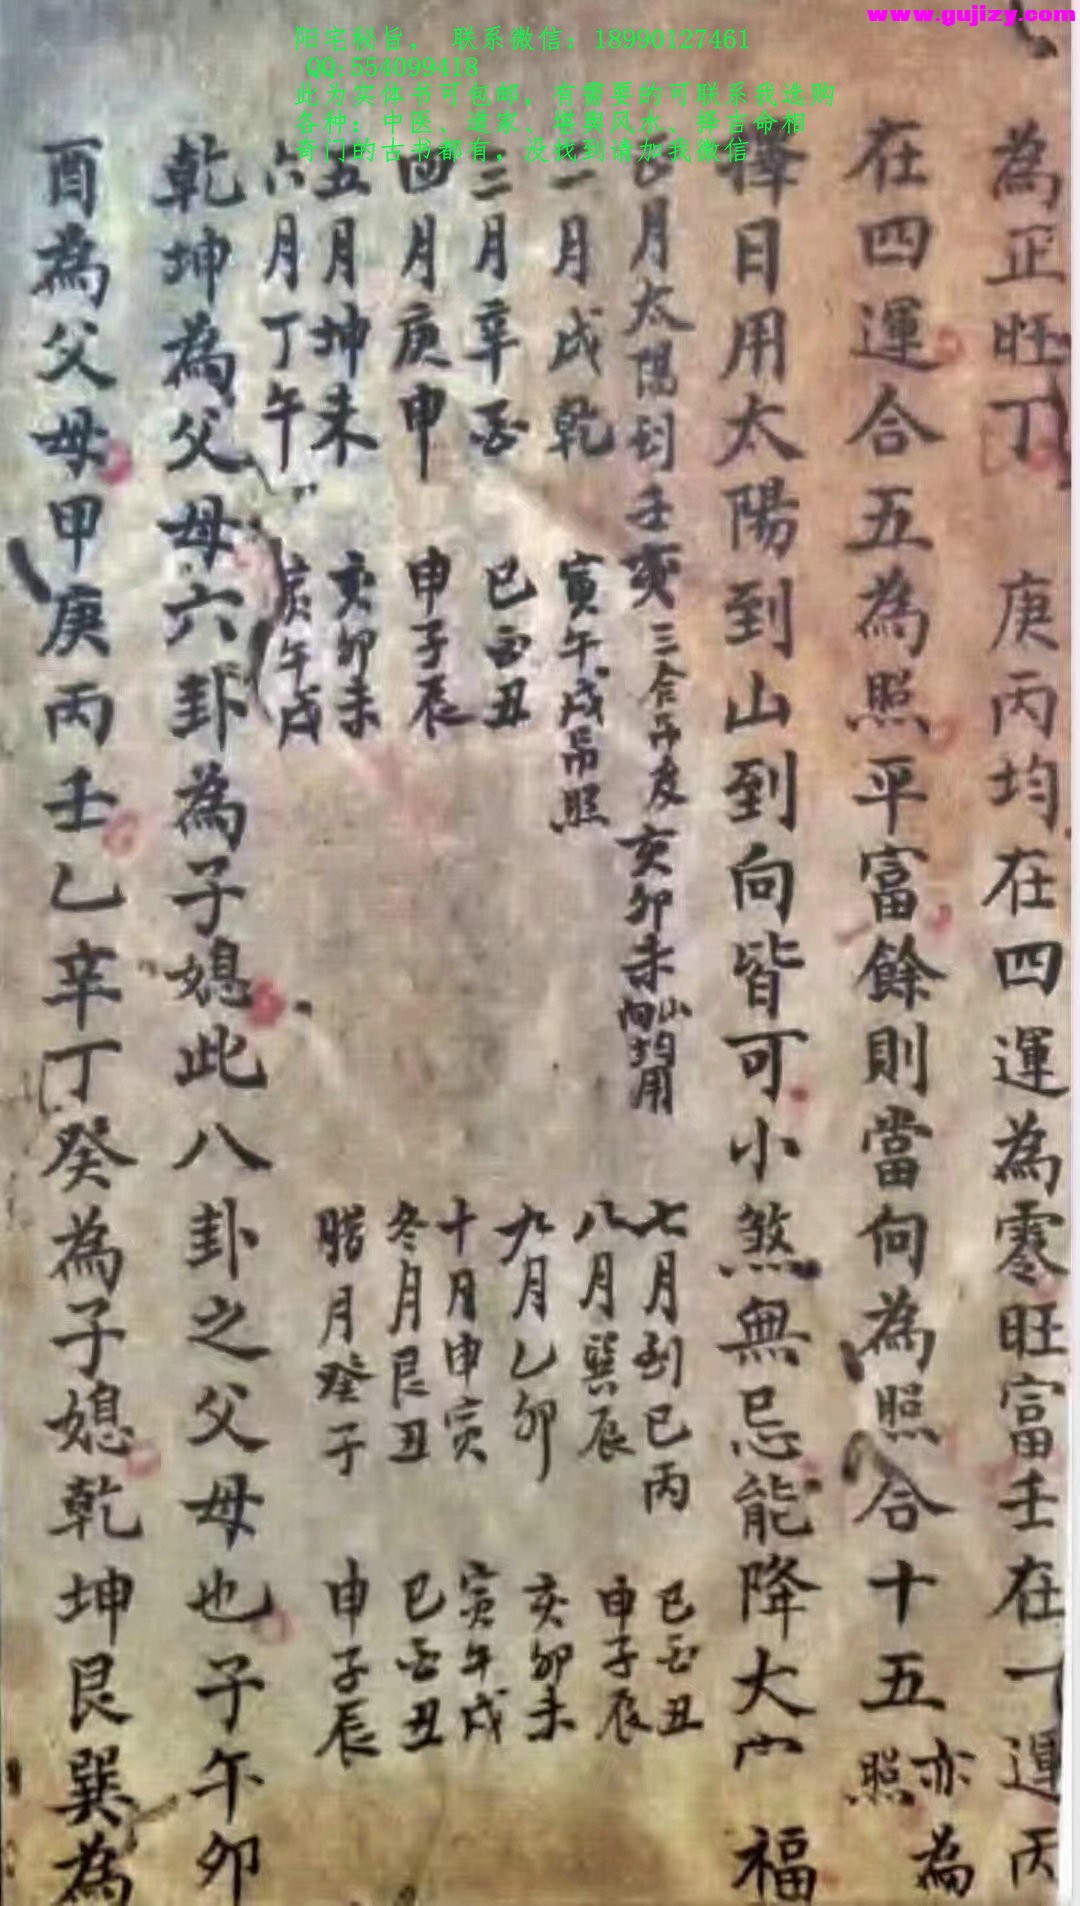 www.gujizy.com
阳宅秘旨， 联系微信：18990127461
QQ:554099418
此为实体书可包邮，有需要的可联系我选购
各种：中医、道家、堪舆风水、择吉命相
奇门的古书都有，没找到请加我微信
為正旺丁 庚丙均在四運為零旺富壬在一運丙
在四運合五為照平富餘則當向為照合十五亦為照
擇日用太陽到山到向皆可小煞無忌能降大 福
正月太陽到壬亥三合吊及亥卯未山向均用
二月戌乾 寅午戌吊照
三月辛酉 巳酉丑
四月庚申 申子辰
五月坤未 亥卯未
六月丁午 寅午戌
七月到巳丙 巳酉丑
八月巽辰 申子辰
九月乙卯 亥卯未
十月申寅 寅午戌
冬月艮丑 巳酉丑
腊月癸子 申子辰
乾坤為父母六卦為子媳此八卦之父母也子午卯
酉為父母甲庚丙壬乙辛丁癸為子媳乾坤艮巽為